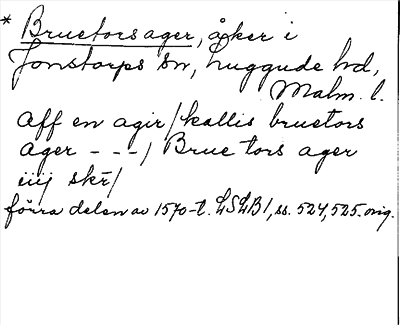 * Bruetorsager, åker i
Jonstorps sn, Luggude hd,
Malm. l.
aff en agir/kallis bruetors
ager - - -/ Brue tors ager
iiij skr̄/
förra delen av 1570-t. LSLB1, ss. 524, 525. orig.